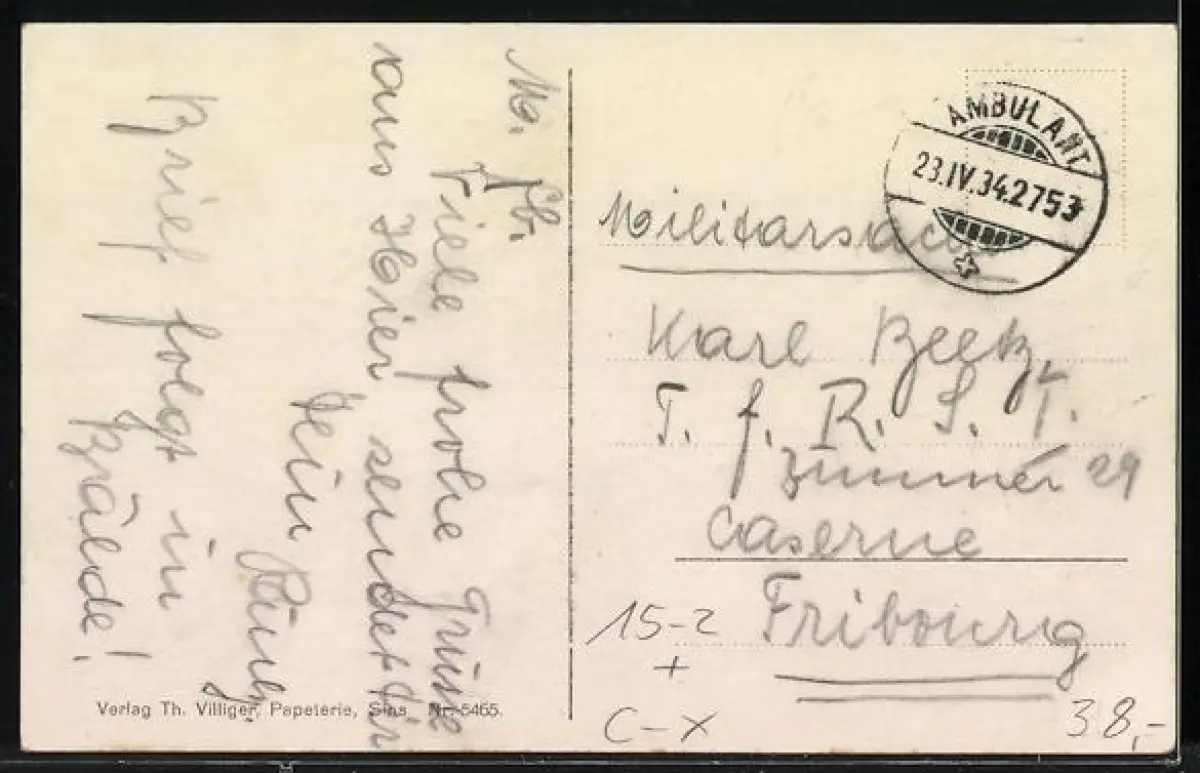 M. Lb.
Viele frohe Grüsse
aus Hier sendet dir
dein
Brief folgt in
Bälde!
Verlag Th. Villiger, Papeterie, Sins Nr. 5465.
AMBULANT
23.IV.34.2753
Militärsache
Karl Beetz,
T. f. R. S. T.
Zimmer 29
Caserne
Fribourg
15-2
+
C-X
38,-